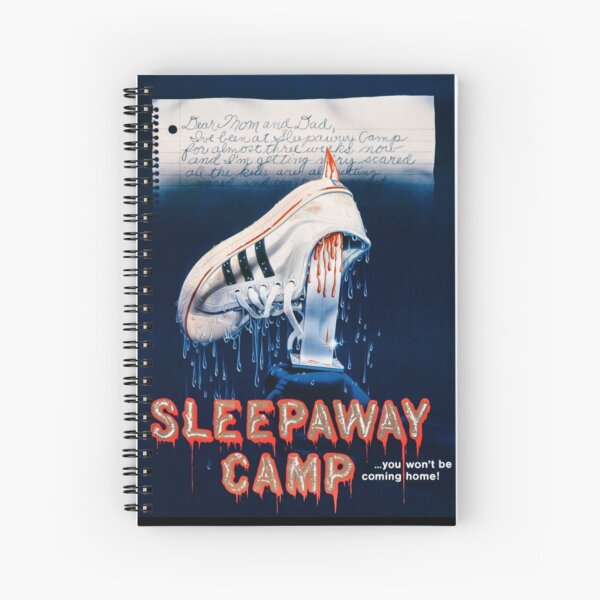 Dear Mom and Dad,
I've been at Sleepaway Camp
for almost three weeks now
and I'm getting very scared
all the kids are all
SLEEPAWAY
CAMP
...you won't be
coming home!